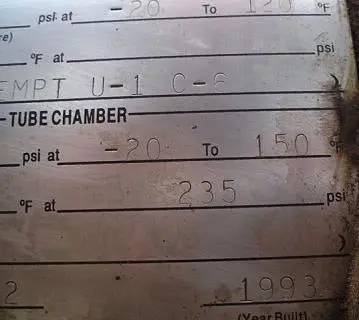 psi at -20 To 120 °F
re)
°F at psi
EMPT U-1 C-6 )
TUBE CHAMBER
psi at -20 To 150 °F
°F at 235 psi
)
2 1993
(Year Built)